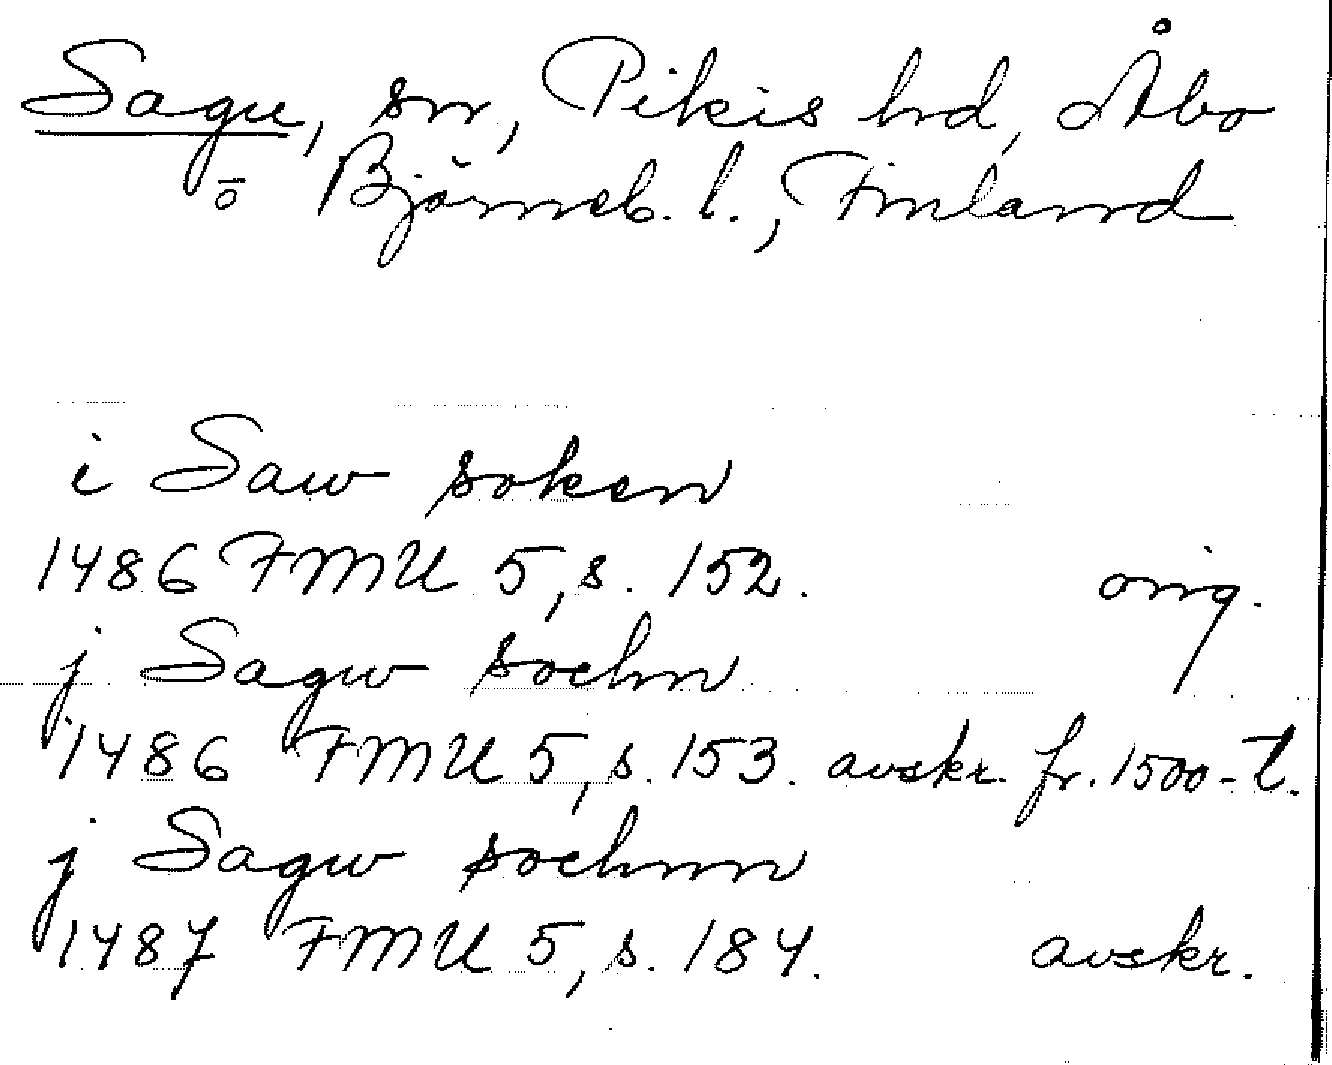 Sagu, sn, Pikis hd, Åbo
o Björneb. l., Finland
i Saw soken
1486 FMU 5, s. 152. orig.
j Sagw sochn
1486 FMU 5, s. 153. avskr. fr. 1500-t.
j Sagw sochnn
1487 FMU 5, s. 184. avskr.